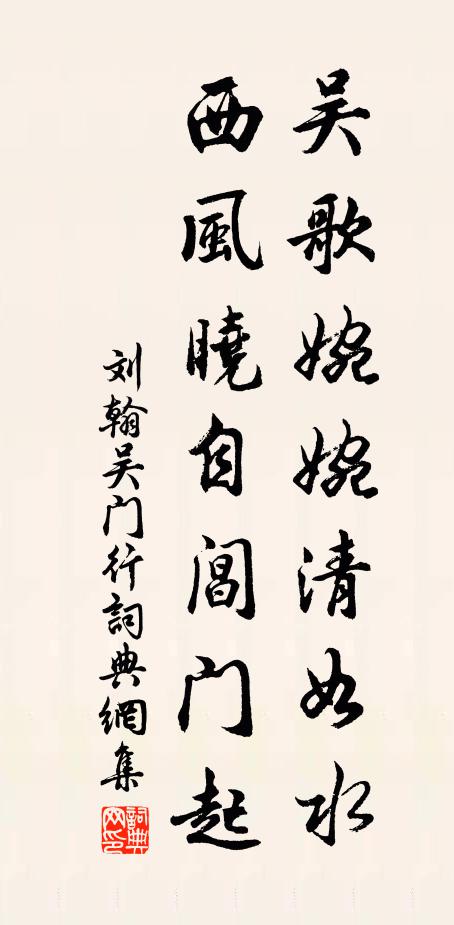 吴歌婉婉清如水
西風曉自閶门起
刘翰吴门行詞典網集
詞典网印